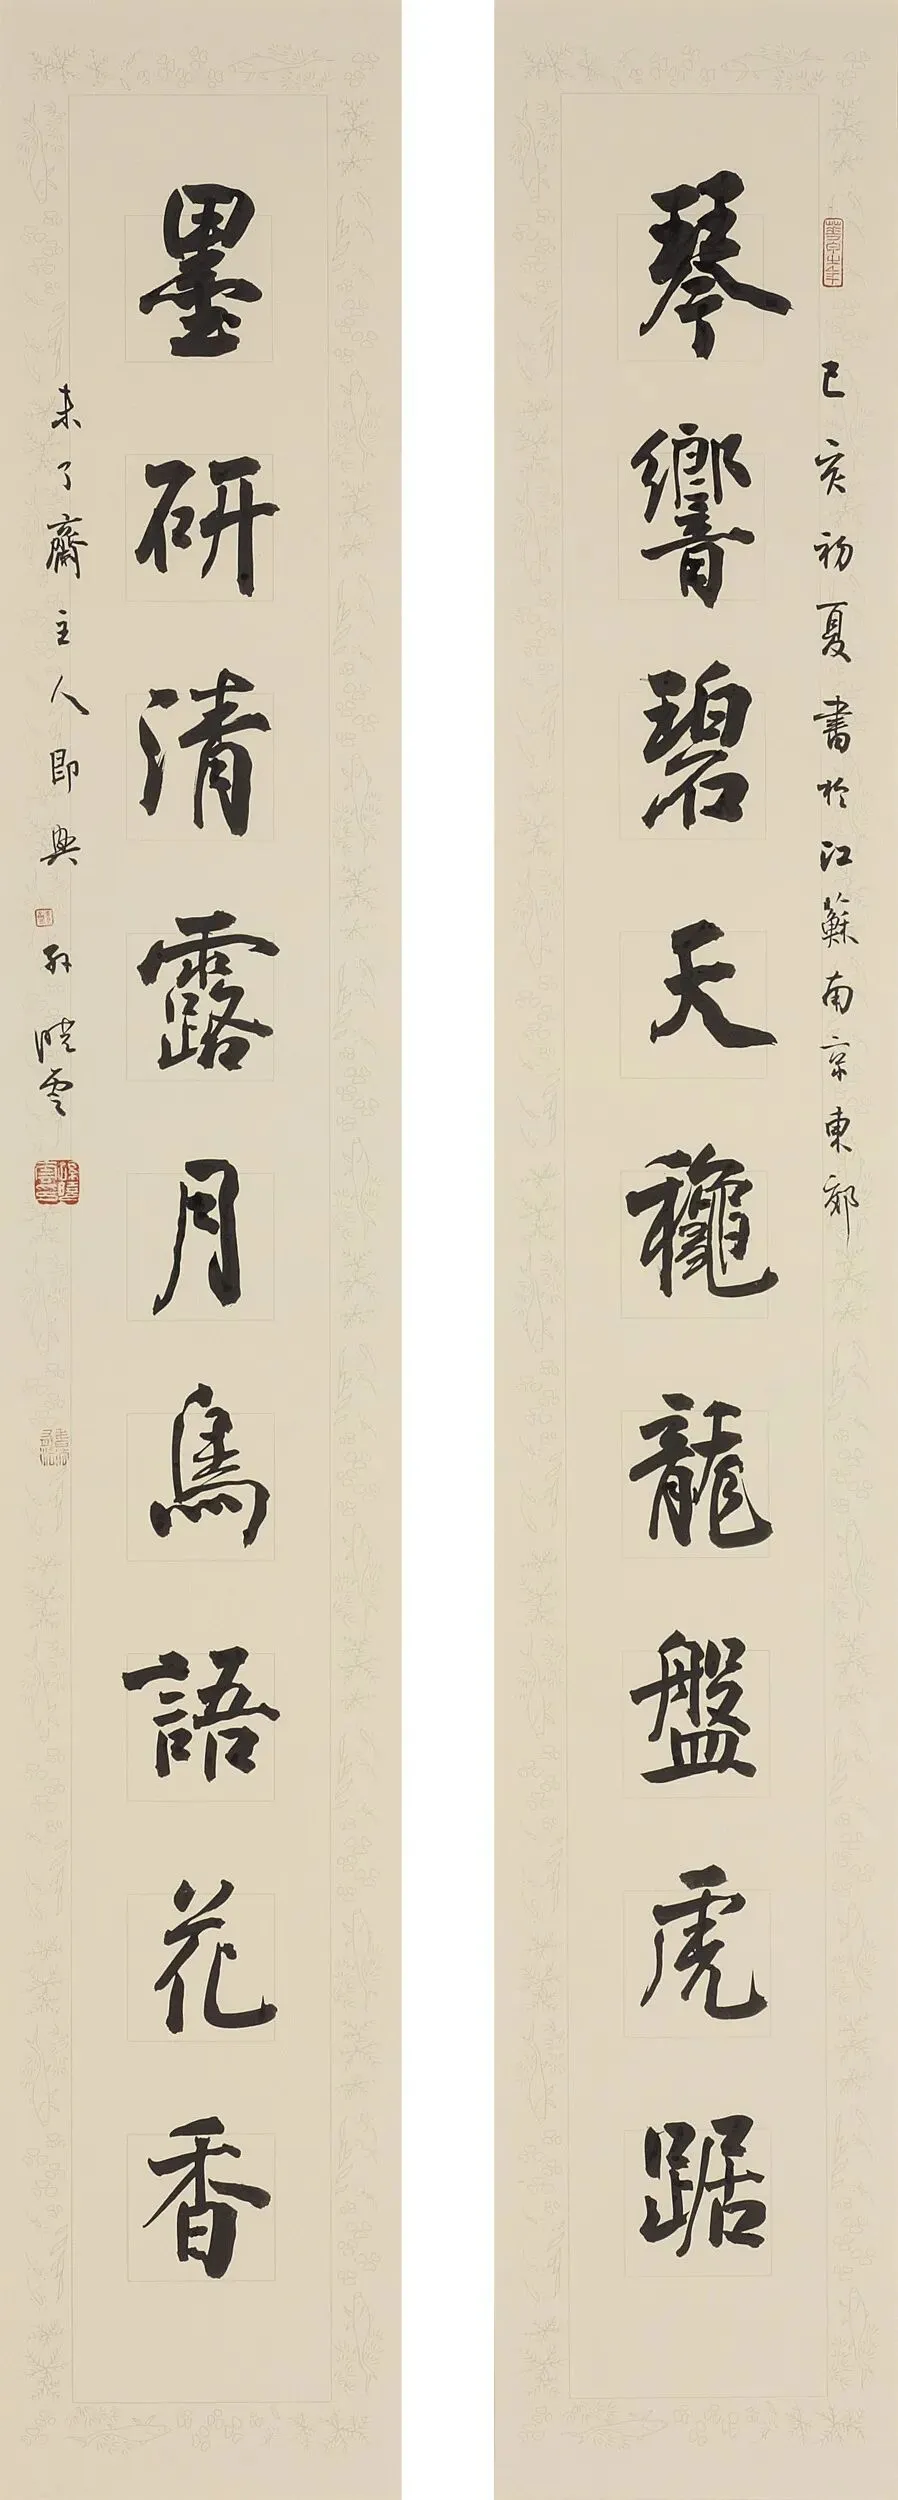 己亥初夏書於江蘇南京東郊
琴響碧天穐龍盤虎踞
墨研清露月鳥語花香
未了齋主人即興 孫曉雲